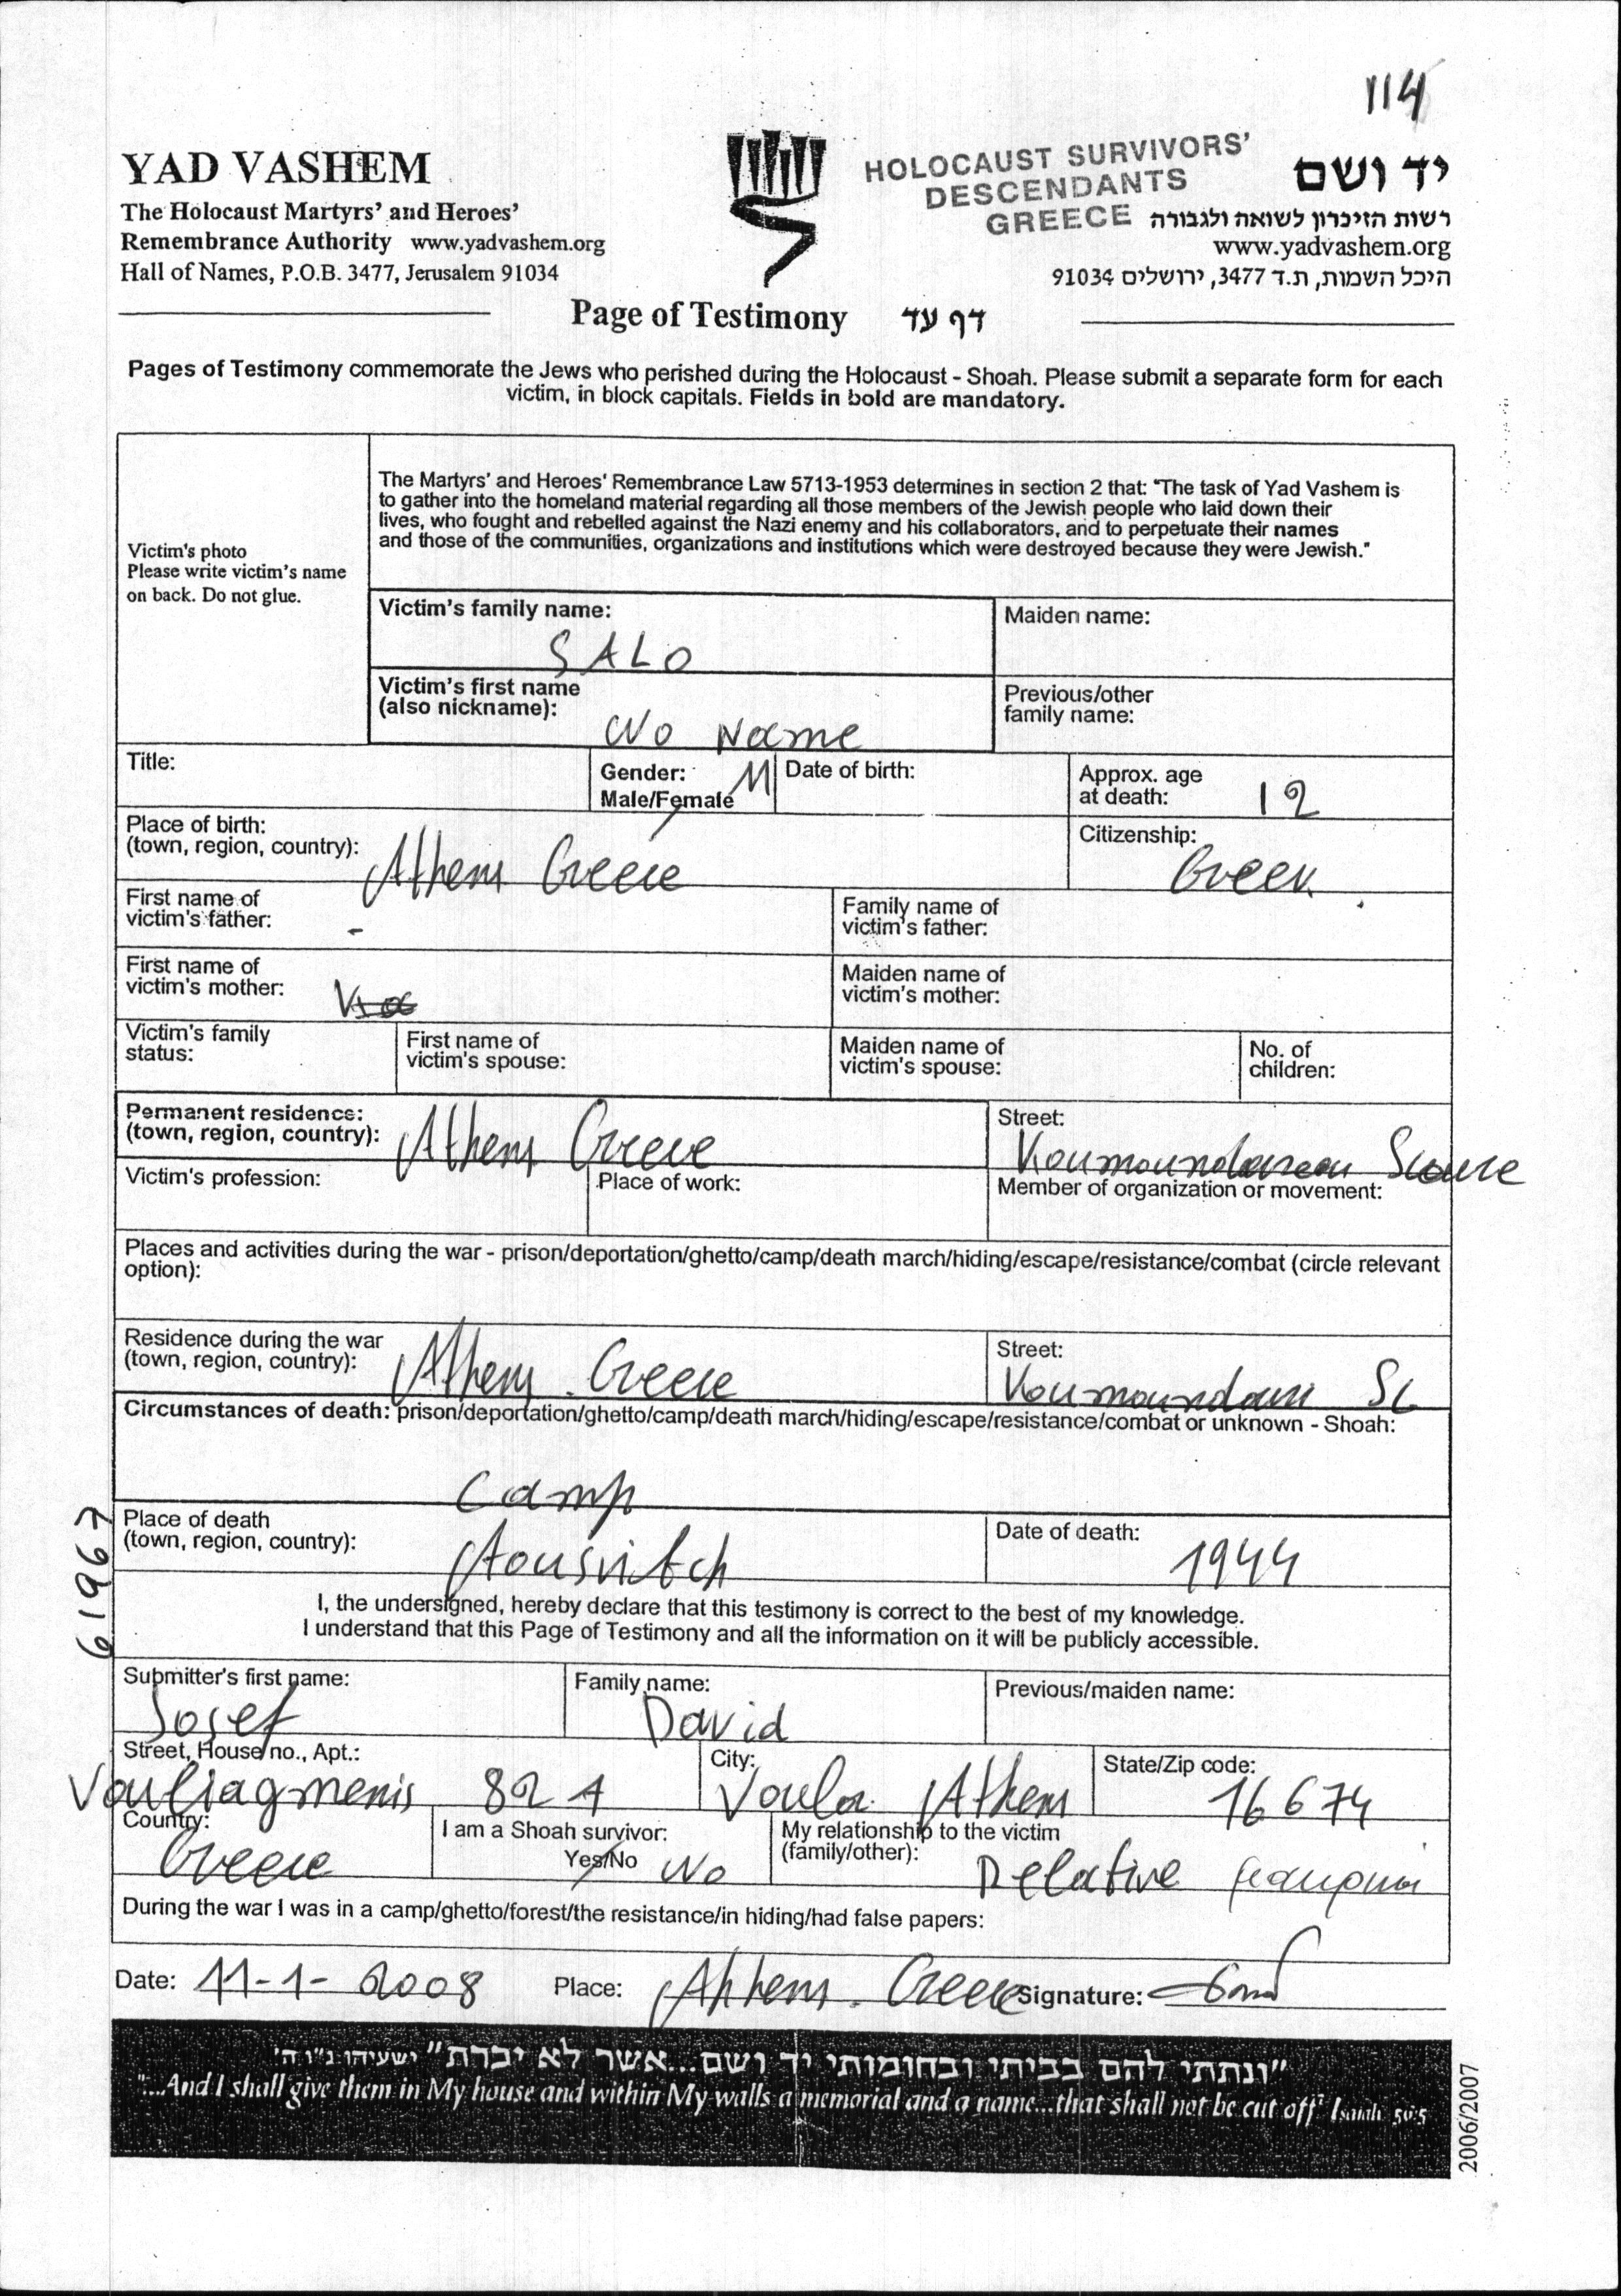 114
YAD VASHEM
The Holocaust Martyrs' and Heroes'
Remembrance Authority www.yadvashem.org
Hall of Names, P.O.B. 3477, Jerusalem 91034
HOLOCAUST SURVIVORS'
DESCENDANTS
GREECE
יד ושם
רשות הזיכרון לשואה ולגבורה
www.yadvashem.org
היכל השמות, ת.ד 3477, ירושלים 91034
Page of Testimony דף עד
Pages of Testimony commemorate the Jews who perished during the Holocaust - Shoah. Please submit a separate form for each
victim, in block capitals. Fields in bold are mandatory.
Victim's photo
Please write victim's name
on back. Do not glue.
The Martyrs' and Heroes' Remembrance Law 5713-1953 determines in section 2 that: "The task of Yad Vashem is
to gather into the homeland material regarding all those members of the Jewish people who laid down their
lives, who fought and rebelled against the Nazi enemy and his collaborators, and to perpetuate their names
and those of the communities, organizations and institutions which were destroyed because they were Jewish."
Victim's family name:
SALO
Maiden name:
Victim's first name
(also nickname):
No Name
Previous/other
family name:
Title:
Gender: M
Male/Female
Date of birth:
Approx. age
at death: 12
Place of birth:
(town, region, country): Athens Greece
Citizenship:
Greek
First name of
victim's father: -
Family name of
victim's father:
First name of
victim's mother:
Maiden name of
victim's mother:
Victim's family
status:
First name of
victim's spouse:
Maiden name of
victim's spouse:
No. of
children:
Permanent residence:
(town, region, country): Athens Greece
Street:
Koumoundourou
Victim's profession:
Place of work:
Member of organization or movement:
Places and activities during the war - prison/deportation/ghetto/camp/death march/hiding/escape/resistance/combat (circle relevant
option):
Residence during the war
(town, region, country): Athens. Greece
Street:
Circumstances of death: prison/deportation/ghetto/camp/death march/hiding/escape/resistance/combat or unknown - Shoah:
Camp
Place of death
(town, region, country): Aousvitch
Date of death:
1944
61967
I, the undersigned, hereby declare that this testimony is correct to the best of my knowledge.
I understand that this Page of Testimony and all the information on it will be publicly accessible.
Submitter's first name:
Josef
Family name:
David
Previous/maiden name:
Street, House no., Apt.:
Vouliagmenis 82 A
City:
Voula Athens
State/Zip code:
16674
Country:
Greece
I am a Shoah survivor:
Yes/No No
My relationship to the victim
(family/other): Relative
During the war I was in a camp/ghetto/forest/the resistance/in hiding/had false papers:
Date: 11-1-2008 Place: Athens. Greece Signature:
"ונתתי להם בביתי ובחומותי יד ושם...אשר לא יכרת" ישעיהו נ"ו ה'
"...And I shall give them in My house and within My walls a memorial and a name...that shall not be cut off" Isaiah 56:5
2006/2007